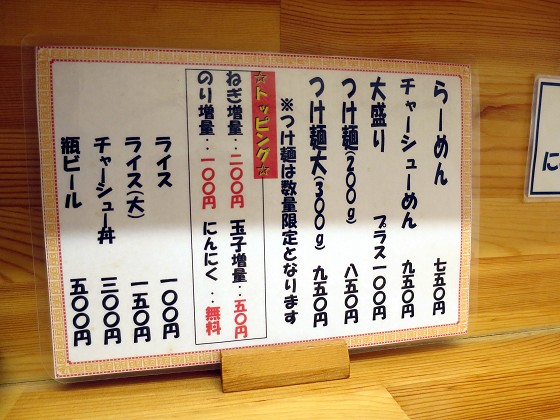 らーめん 七五〇円
チャーシューめん 九五〇円
大盛り プラス一〇〇円
つけ麺(200g) 八五〇円
つけ麺大(300g) 九五〇円
※つけ麺は数量限定となります
☆トッピング☆
ねぎ増量：二〇〇円 玉子増量：五〇円
のり増量：一〇〇円 にんにく：無料
ライス 一〇〇円
ライス(大) 一五〇円
チャーシュー丼 三〇〇円
瓶ビール 五〇〇円
に